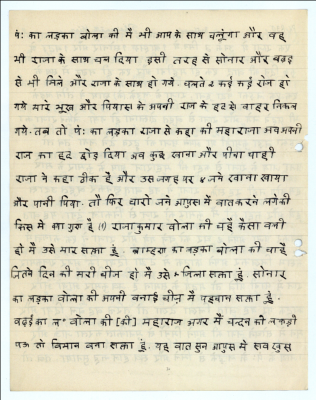 पं: का लड़का बोला की मैं भी आप के साथ चलुंगा और वह
भी राजा के साथ चल दिया. इसी तरह से सोनार और बढ़इ
से भी मिले और राजा के साथ हो गये. चलते २ कई कई रोज हो
गये मारे भूख और पियास के अपनी राज के हद से बाहर निकल
गये. तब तो पं: का लड़का राजा से कहा की महाराजा अब अपनी
राज का हद छोड़ दिया अब कुछ खाना और पीना चाही
राजा ने कहा ठीक है और उस जगह पर ४ जने खाना खाया
और पानी पिया. तो फिर चारो जने आपुस में बात करने लगे की
किस में क्या गुण है (।) राजाकुमार बोला की चहैं कैसा बली
हो मैं उसे मार सक्ता हुं. ब्राम्हण का लड़का बोला की चाहें
जितने दिन की मरी चीज हो मैं उसे जिला सक्ता हुं. सोनार
का लड़का बोला की अपनी बनाई चीज़ में पहचान सक्ता हुं.
बढ़ई का ल° बोला की [की] महाराज अगर मैं चन्दन की लकड़ी
पऊ तो विमान बना सक्ता हुं. यह बात सुन आपुस में सब खुस